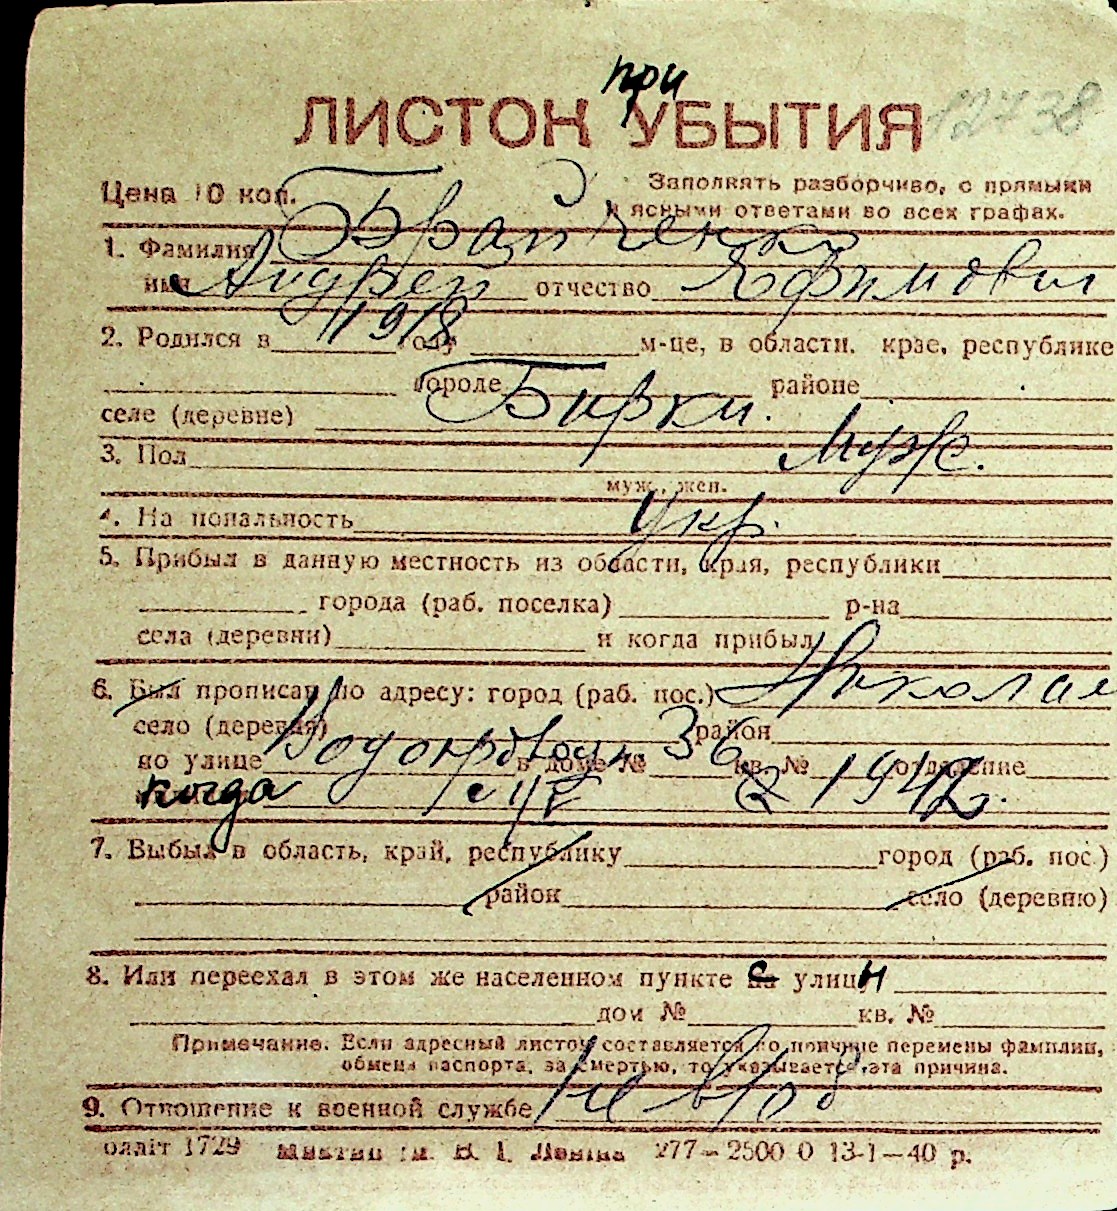 при
ЛИСТОК УБЫТИЯ 12738
Цена 10 коп. Заполнять разборчиво, с прямыми
и ясными ответами во всех графах.
1. Фамилия Брайченко
имя Андрей отчество Ефимович
2. Родился в 1918 году м-це, в области, крае, республике
городе Бирки. районе
селе (деревне)
3. Пол Муж.
муж., жен.
4. На иональность Укр.
5. Прибыл в данную местность из области, края, республики
города (раб. поселка) р-на
села (деревни) и когда прибыл
6. Был прописан по адресу: город (раб. пос.) Николаев
село (деревня) район
по улице в доме № 36 кв. № 2 отделение
когда 1942.
7. Выбыл в область, край, республику город (раб. пос.)
район село (деревню)
8. Или переехал в этом же населенном пункте с на улицы
дом № кв. №
Примечание. Если адресный листок составляется по причине перемены фамилии,
обмена паспорта, за смертью, то указывается эта причина.
9. Отношение к военной службе
1729 ім. В. І. Леніна 277—2500 0 13-1—40 р.